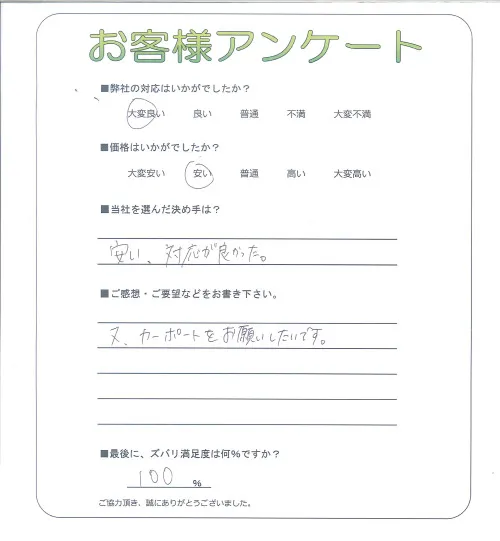 お客様アンケート
■弊社の対応はいかがでしたか？
大変良い 良い 普通 不満 大変不満
■価格はいかがでしたか？
大変安い 安い 普通 高い 大変高い
■当社を選んだ決め手は？
安い、対応が良かった。
■ご感想・ご要望などをお書き下さい。
又、カーポートをお願いしたいです。
■最後に、ズバリ満足度は何%ですか？
100 %
ご協力頂き、誠にありがとうございました。